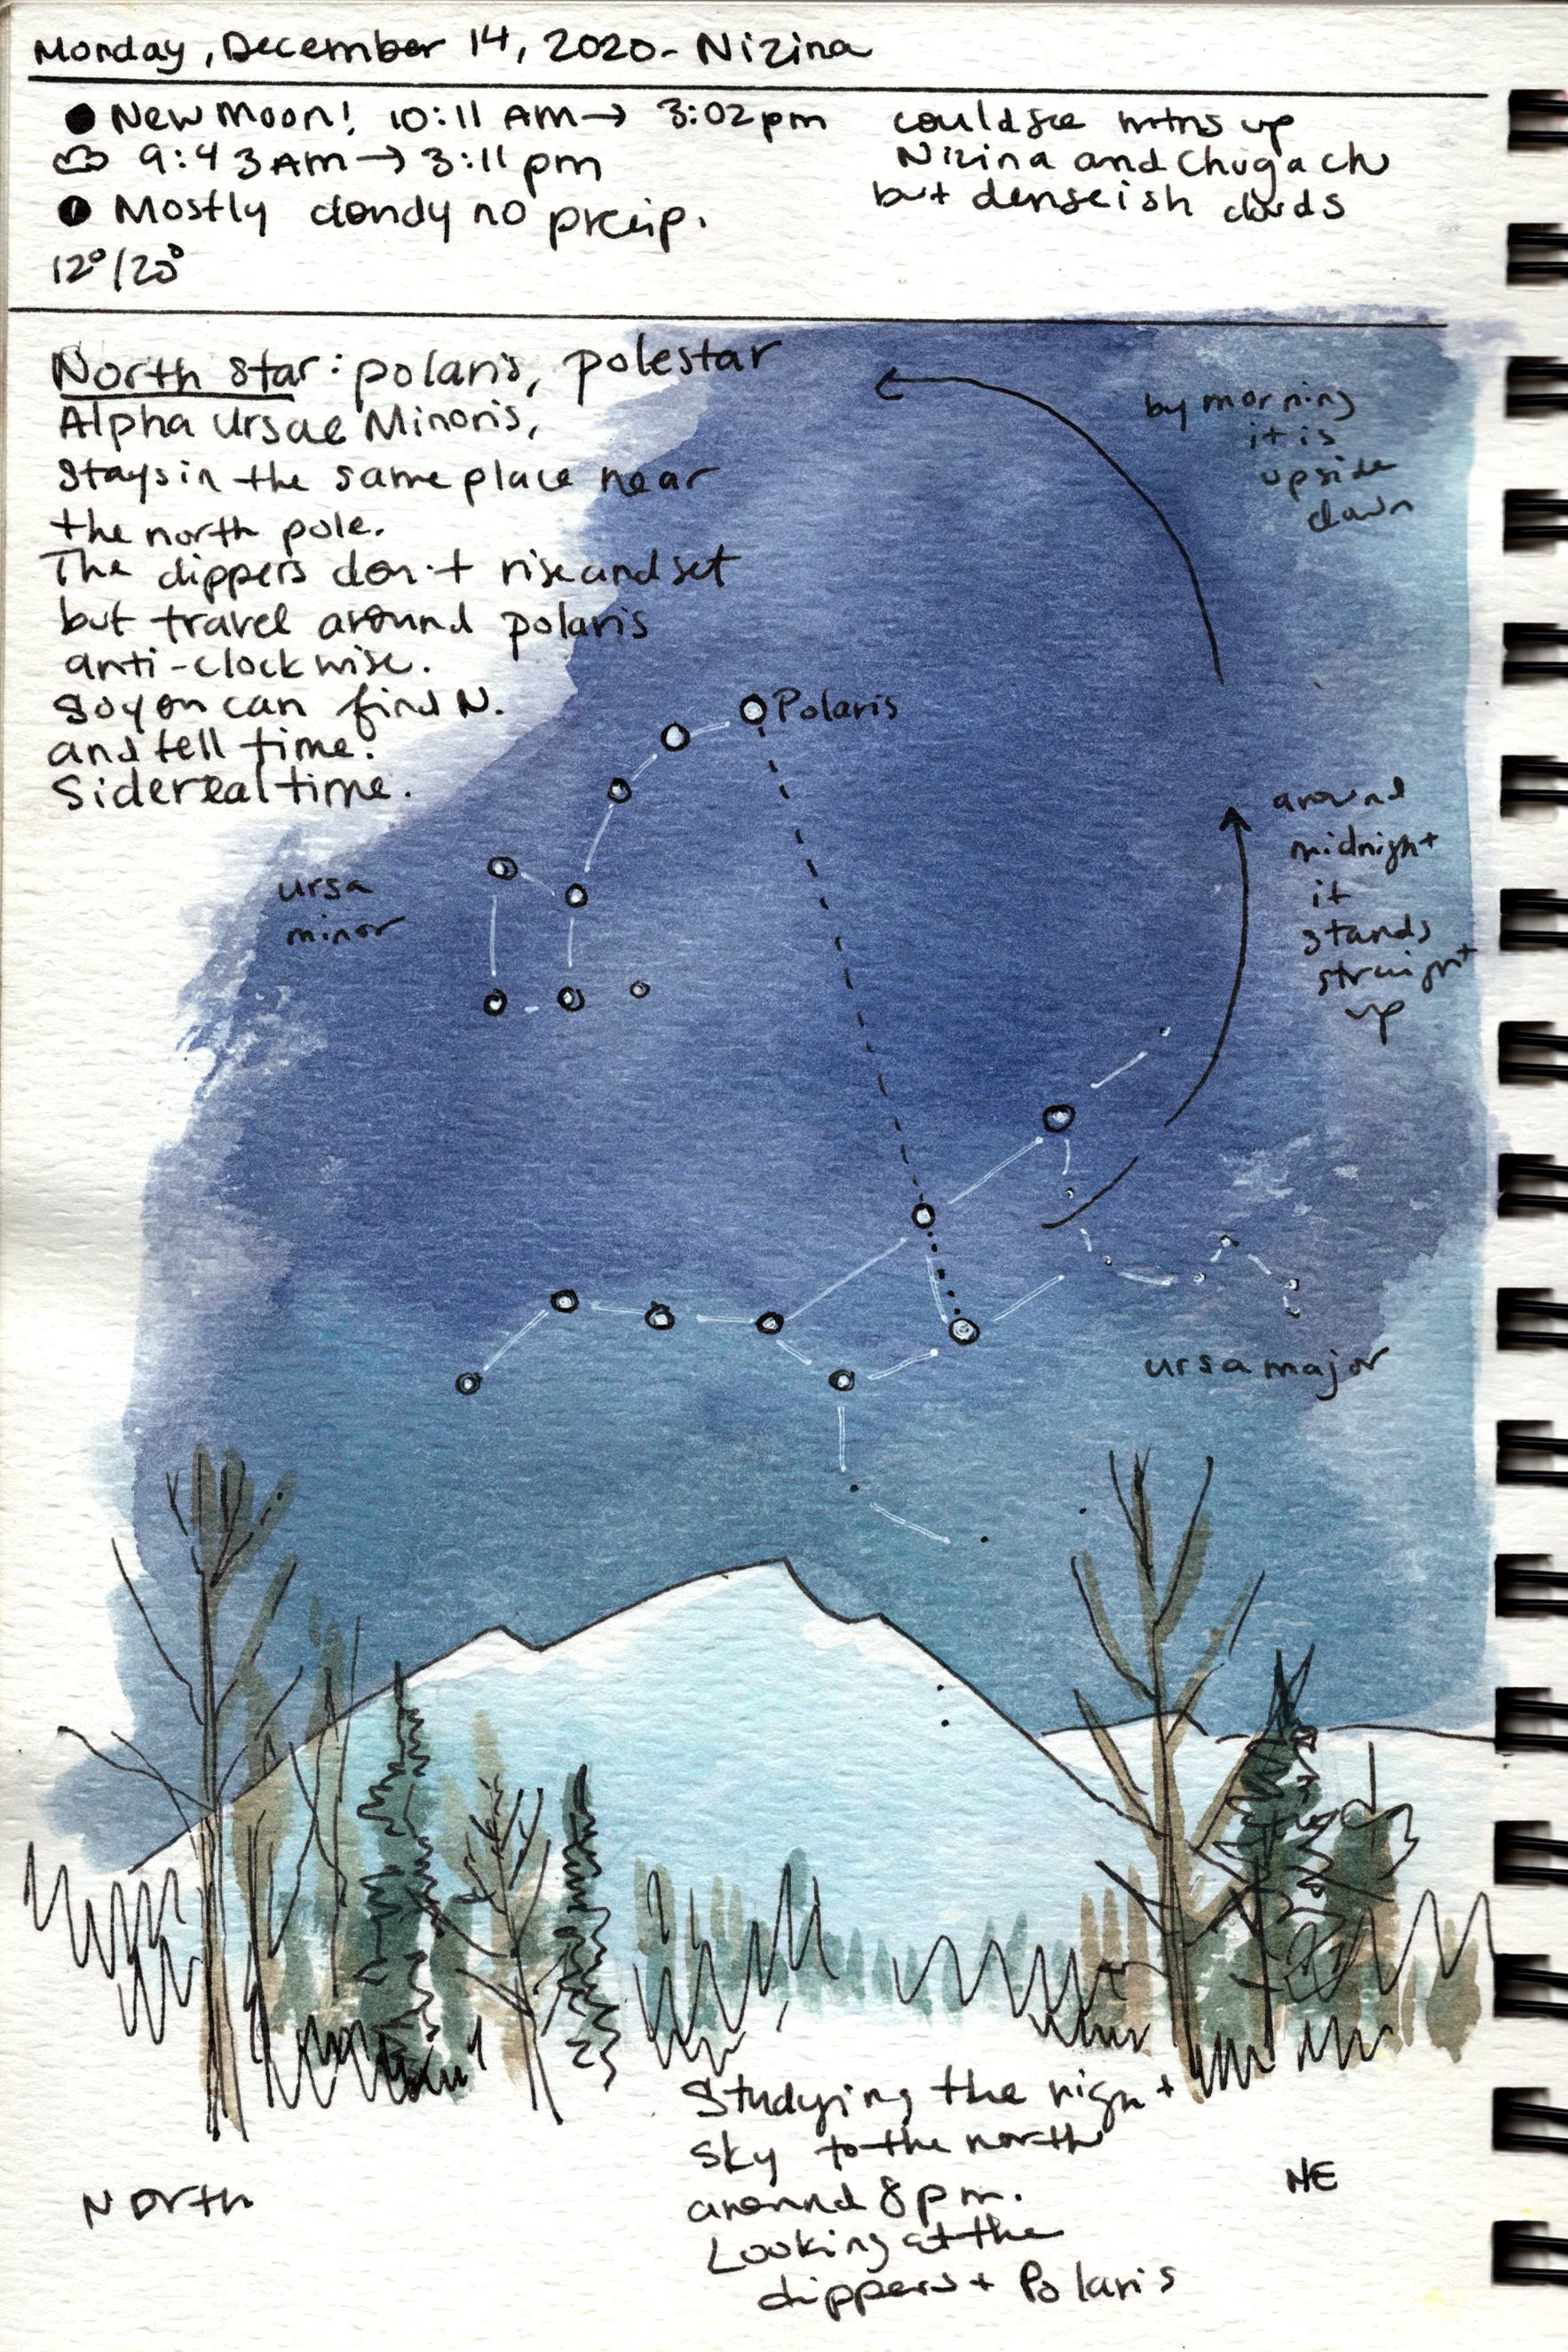 Monday, December 14, 2020 - Nizina
New Moon! 10:11 AM → 3:02 pm
9:43 AM → 3:11 pm
Mostly cloudy no precip.
12°/23°
could see mtns up
Nizina and Chugach
but denseish clouds
North Star: polaris, polestar
Alpha Ursae Minoris,
Stays in the same place near
the north pole.
The dippers don't rise and set
but travel around polaris
anti-clockwise.
So you can find N.
and tell time.
Sidereal time.
by morning
it is
upside
down
Polaris
around
midnight
it
stands
straight
up
ursa
minor
ursa major
Studying the night
sky to the north
around 8 pm.
Looking at the
dippers + Polaris
North
NE